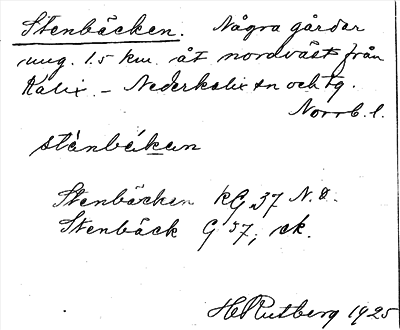 Stenbäcken. Några gårdar
ung. 1.5 km. åt nordväst från
Kalix. – Nederkalix sn och tg.
Norrb. l.
stànbékan
Stenbäcken kG 37 N.O.
Stenbäck G 37, ek.
H Rutberg 1925